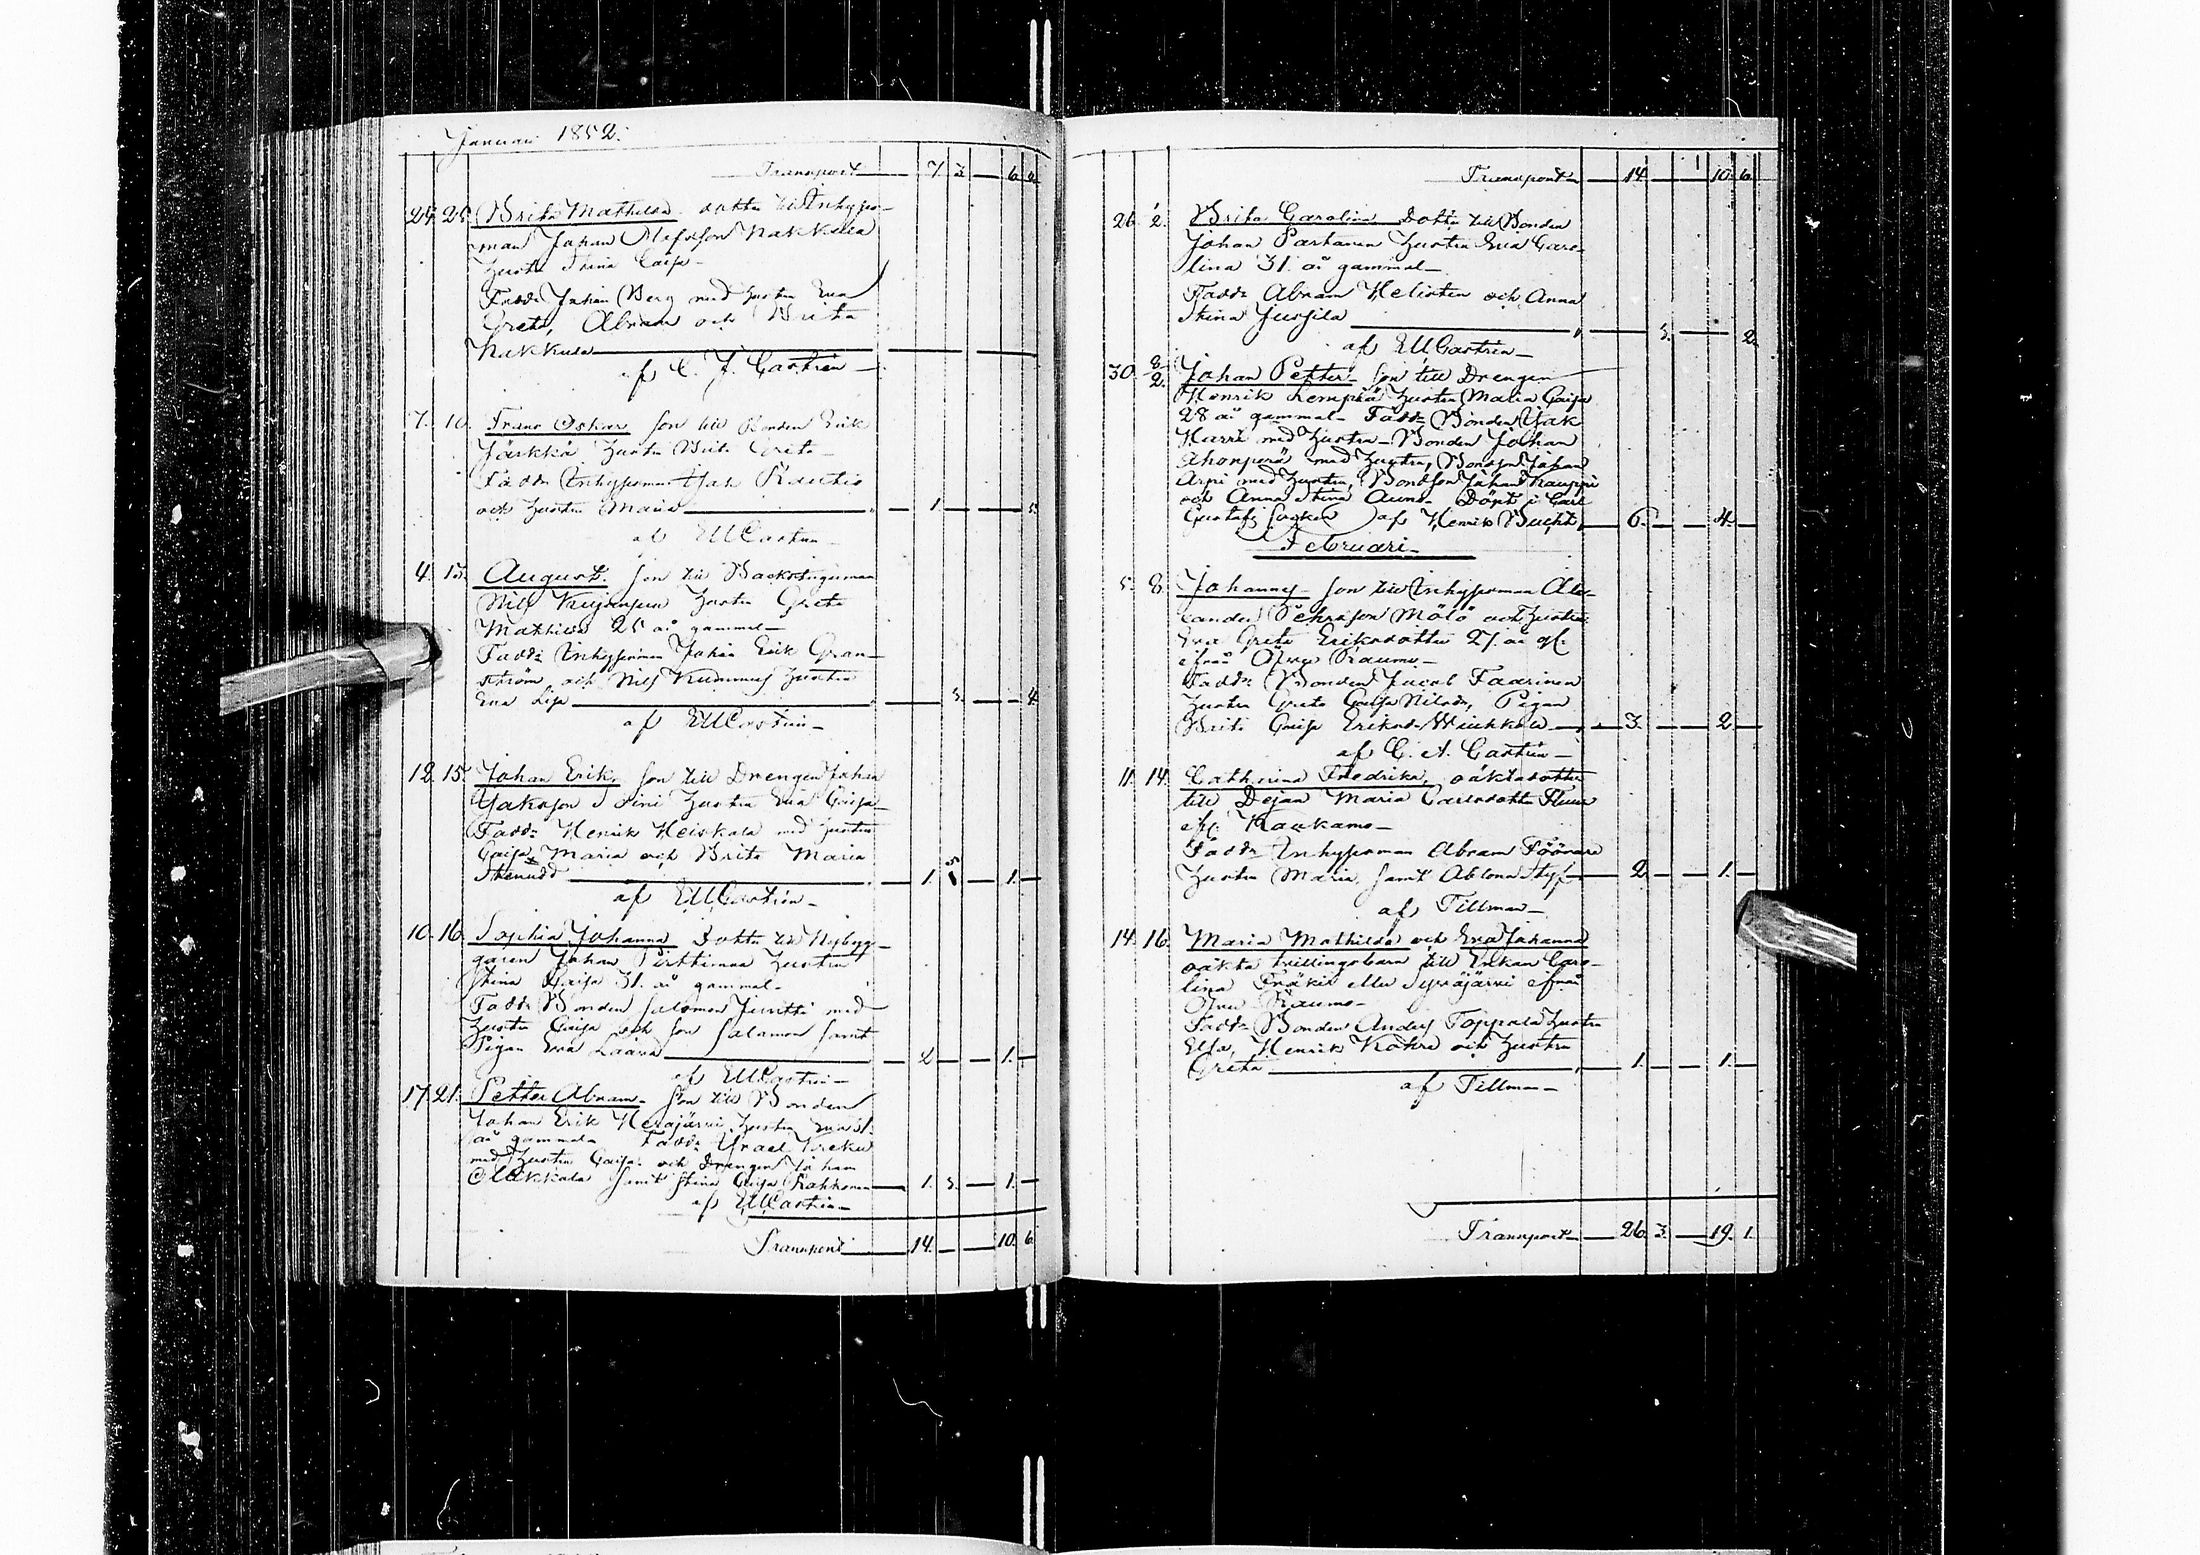 Januari 1852.
Transport 7. 3. 6.
24. 25. Brita Mathilda dotter till Inhyses-
man Johan Olofsson Nakkula
hustr. Stina Caisa
Fadd: Johan Berg med hustru Eva
Greta, Abram och Brita
Nakkula
af C. J. Castrén
7. 10. Frans Oskar son till Bonden Erik
Jäskkä hustru Brita Greta
Faddr Inhysesman Isak Rautio
och hustru Maria 1. 5.
af EUCastrén
4. 15. August. son till Backstuguman
Nils hustru Greta
Mathilda 25 år gammal
Fadd: Inhysesman Johan Erik Gran-
ström och Nils Kummus hustru
Eva Lisa 3. 4.
af EUCastrén
12. 15. Johan Erik. son till Drengen Johan
Jakosson hustru Eva Caisa
Fadd: Henrik Heiskala med hustru
Caisa Maria och Brita Maria
1. 5 1.
af EUCastrén
10. 16. Sophia Johanna. Dotter till Nybyg-
garen Johan Pirttimaa hustru
Stina Caisa 31. år gammal.
Fadd: Bonden Salomon Juntti med
hustru Caisa och son Salamon samt
Pigan Eva Laara 2 1.
af EUCastrén
17. 21. Petter Abram. son till Bonden
Johan Erik Herajärvi hustru Eva 31.
år gammal Fadd: Israel Kreku
med hustru Caisa och Drengen Johan
Olakkala samt Stina Caisa Rahkonen 1. 3. 1.
af EUCastrén
Transport 14. 10. 6
Transport 14. 1 10. 6.
26. 2. Brita Carolina Dotter till Bonden
Johan Partanen hustru Eva Caro-
lina 31. år gammal
Fadd: Abram Helistin och Anna
Stina Jussila 3. 2.
af EUCastrén
30. 8/2. Johan Petter son till Drengen
Henrik Lempiä hustru Maria Caisa
28 år gammal Fadd: Bonden Isak
Harri med hustru Bonden Johan
Ahonperä med hustru, Bondson Johan
Arpi med hustru, Bondson Johan Kauppi
och Anna Stina Auno. Döpt i Carl
Gustafs socken af Henrik Bucht, 6. 4.
Februari
5. 8. Johannes son till Inhysesman Alex-
ander Pehrsson Mölö och hustru
Eva Greta Eriksdotter 27. år gl.
ifrån Öfver Raumo
Fadd: Bonden Jacob Faarinen
hustru Greta Caisa Nilsdr, Pigan
Brita Caisa Eriksdr 3. 2
af C. A. Castrén
11. 14. Catharina Fredrika, oäktadotter
till Dejan Maria Carlsdotter
ifr. Kaukamo
Faddr Inhysesman Abram Föönare
hustru Maria, samt Ablona Styf 2. 1.
af Tillman
14. 16. Maria Mathilda och Eva Johanna
oäkta tvillingabarn till Enkan Caro-
lina Fräki eller Syväjärvi ifrån
Öfver Raumo
Fadd: Bonden Anders Toppala hustru
Elsa, Henrik Kohre och hustru
Greta 1. 1.
af Tillman
Transport 26. 3. 19. 1.